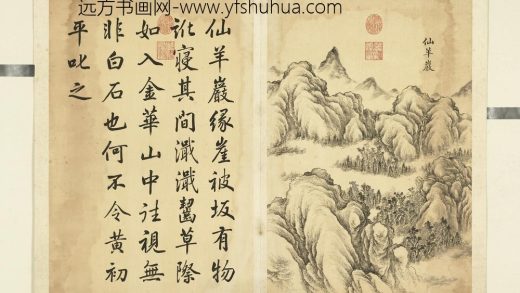 远方书画网-www.yfshuhua.com
仙羊巖
仙羊巖緣崖被坂有物
訛寢其間濈濈齧草際
如入金華山中往視無
非白石也何不令黃初
平叱之